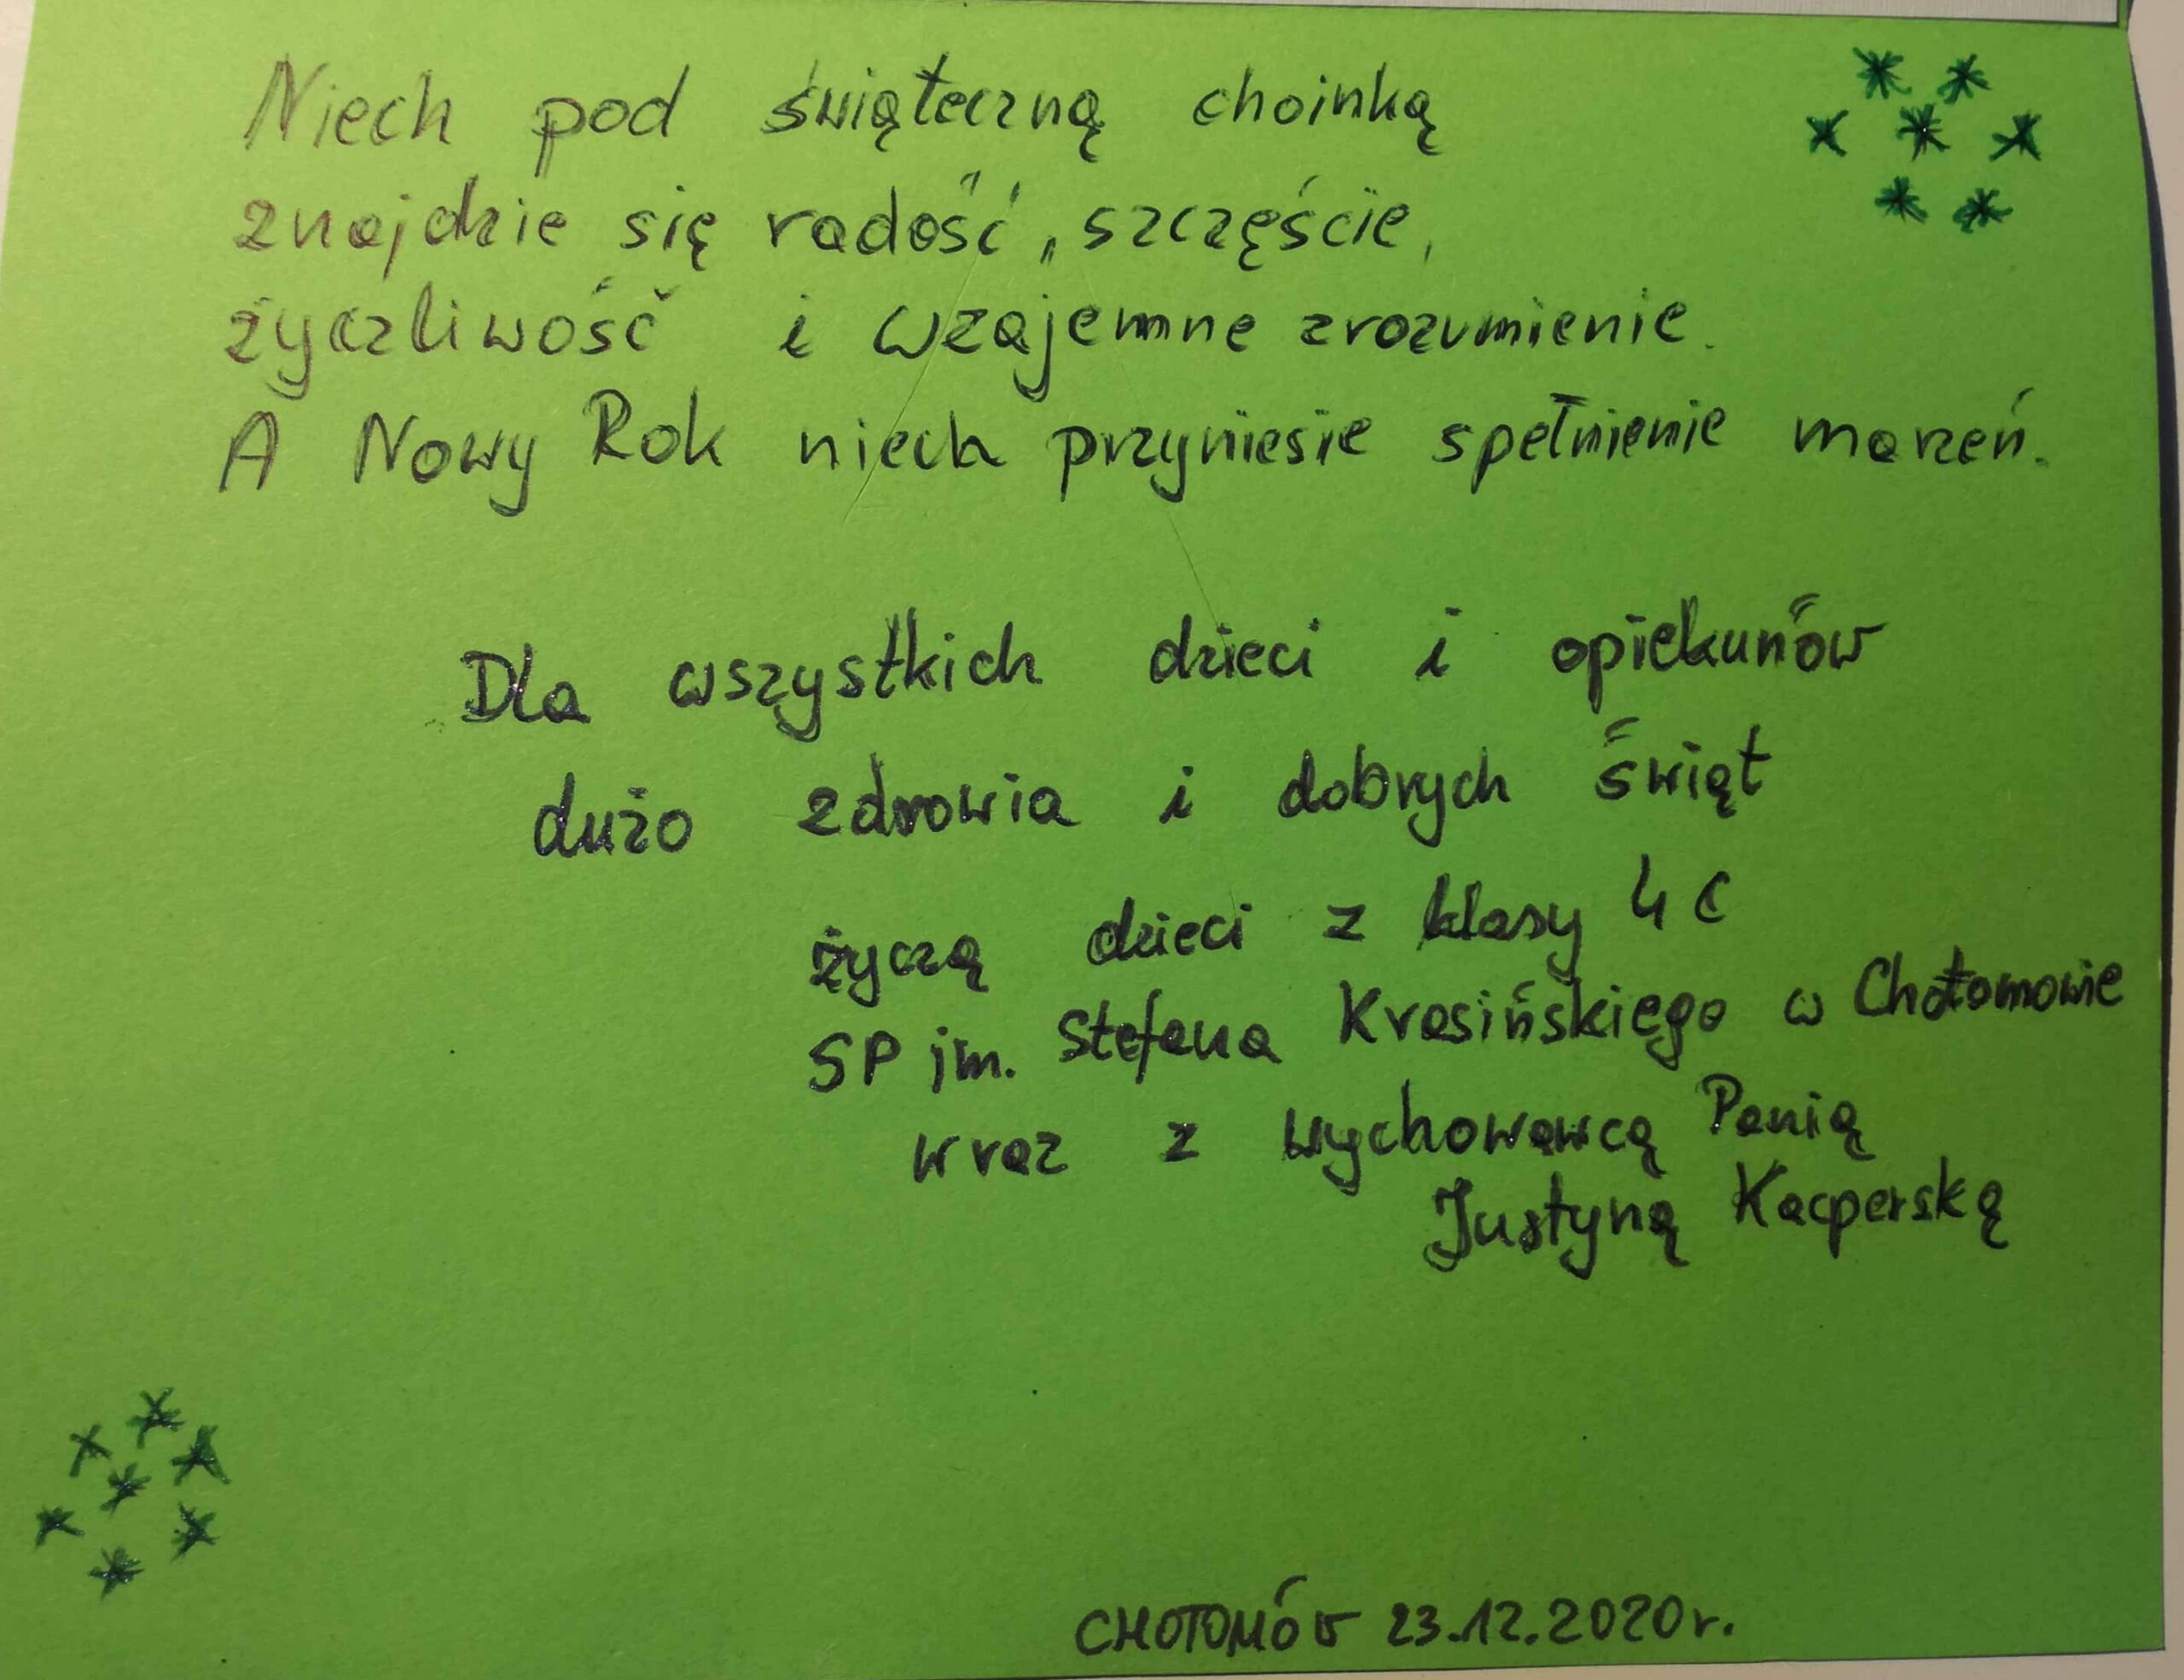 Niech pod świąteczną choinką
znajdzie się radość, szczęście,
życzliwość i wzajemne zrozumienie.
A Nowy Rok niech przyniesie spełnienie marzeń.
Dla wszystkich dzieci i opiekunów
dużo zdrowia i dobrych świąt
życzą dzieci z klasy 4 C
SP im. Stefana Krasińskiego w Chotomowie
wraz z wychowawcą Panią
Justyną Kacperską
CHOTOMÓW 23.12.2020r.